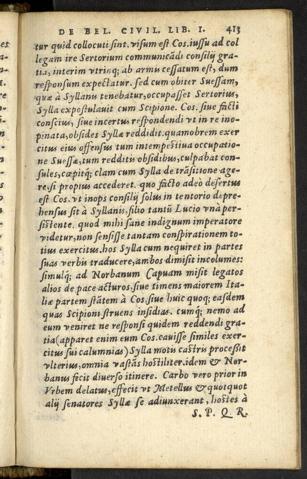 DE BEL. CIVIL. LIB. I. 413
tur quid collocuti sint. visum est Cos. iussu ad col
legam ire Sertorium communicãdi consilij gra-
tia, interim vtrinq; ab armis cessatum est, dum
responsum expectatur. sed cum obiter Suessam,
quæ à Syllanis tenebatur, occupasset Sertorius,
Sylla expostulauit cum Scipione. Cos. siue facti
conscius, siue incertus respondendi vt in re ino-
pinata, obsides Syllæ reddidit. quamobrem exer
citus eius offensus tum intempestiua occupatio-
ne Suessæ, tum redditis obsidibus, culpabat con-
sules, cœpitq; clam cum Sylla de trãsitione age-
re, si propius accederet. quo facto adeo desertus
est Cos. vt inops consilij solus in tentorio depre-
hensus sit à Syllanis, filio tantũ Lucio vnà per-
sistente. quod mihi sane indignum imperatore
videtur, non sensisse tantam conspirationem to-
tius exercitus. hos Sylla cum nequiret in partes
suas verbis traducere, ambos dimisit incolumes:
simulq; ad Norbanum Capuam misit legatos
alios de pace acturos, siue timens maiorem Ita-
liæ partem stãtem à Cos. siue huic quoq; easdem
quas Scipioni struens insidias. cumq; nemo ad
eum veniret ne responsi quidem reddendi gra-
tia (apparet enim eum Cos. cauisse similes exer-
citus sui calumnias) Sylla motis castris processit
vlterius, omnia vastãs hostiliter. idem & Nor-
banus fecit diuerso itinere. Carbo vero prior in
Vrbem delatus, effecit vt Metellus & quotquot
alij senatores Syllæ se adiunxerant, hostes à
S. P. Q. R.